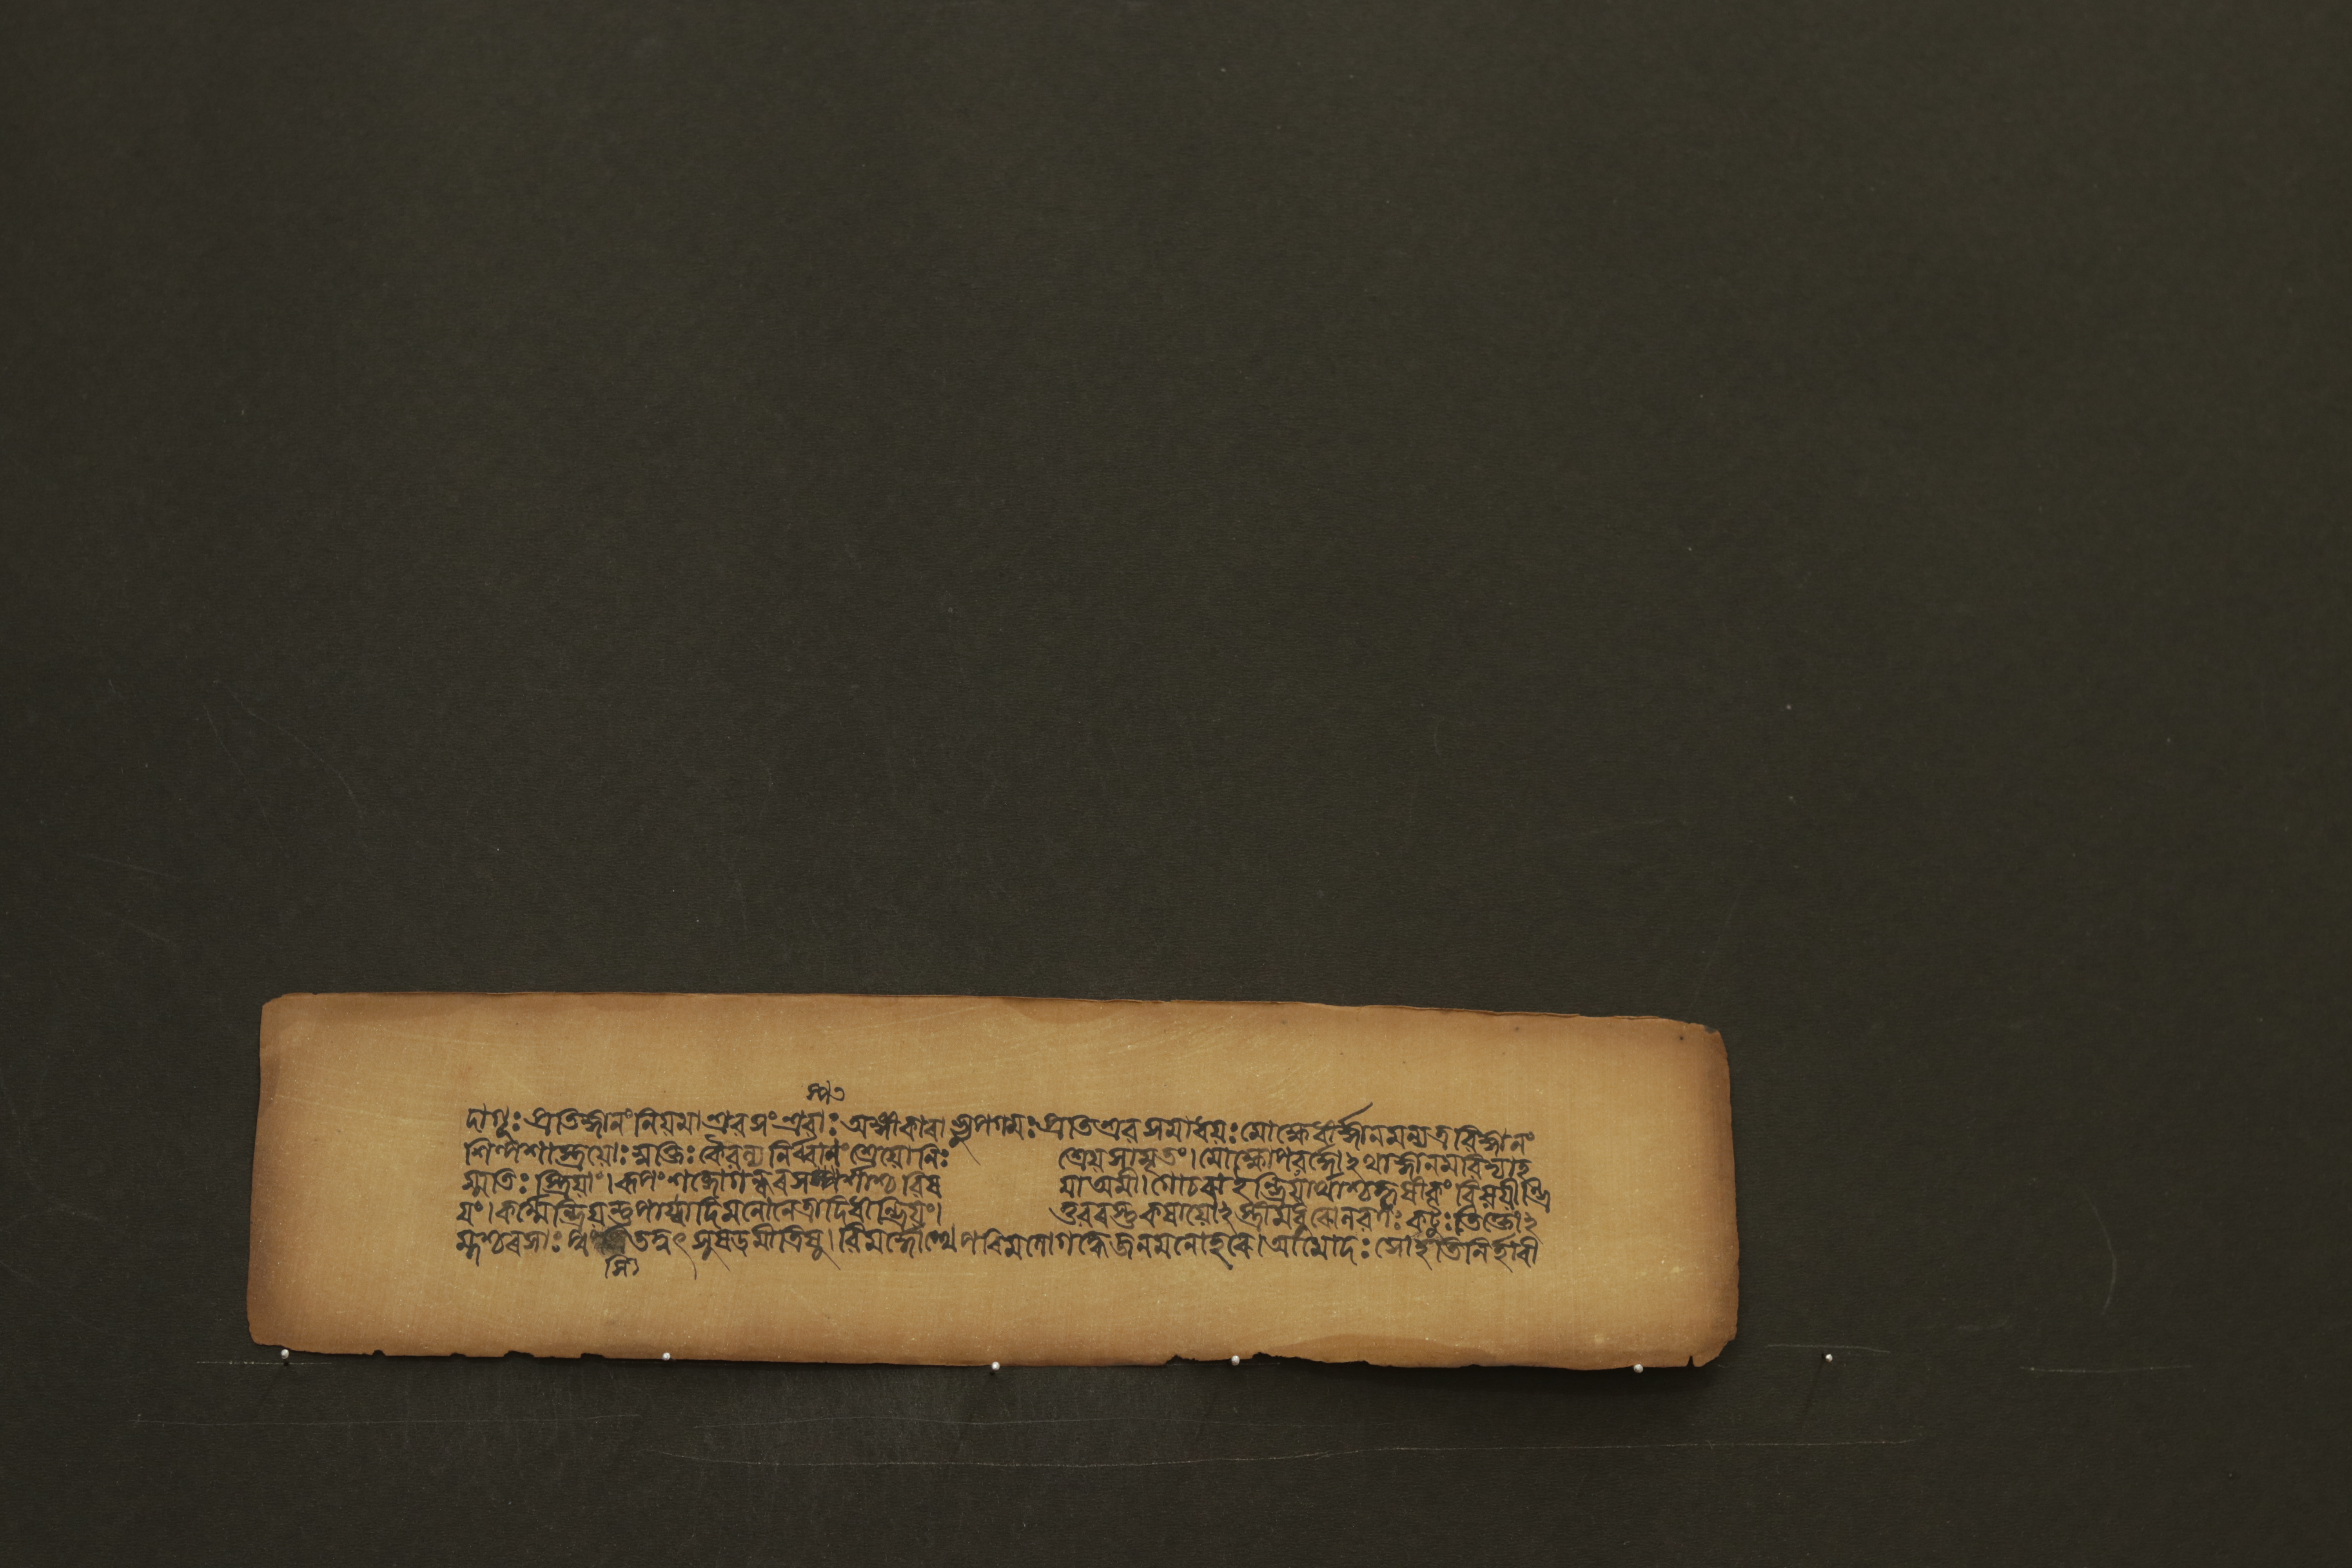 দাগূঃ প্রতিজ্ঞানং নিয়মাশ্রবসংশ্রবাঃ অঙ্গীকাৰাভ্যুপগমঃ প্রতিশ্রবসমাধয়ঃ মোক্ষেধীর্জ্ঞানমন্যত্রবিজ্ঞানং
শিল্পশাস্ত্রয়োঃ মুক্তিঃ কৈবল্যনির্ব্বানং শ্রেয়োনিঃ শ্রেয়সামৃতং। মোক্ষোপবর্গ্গোঽথাজ্ঞানমবিদ্যাহ
ম্মতিঃ স্ত্রিয়াং। ৰূপং শব্দোগন্ধৰসস্পর্শাশ্চবিষ য়াঅমী। গোচৰাইন্দ্রিয়ার্থাশ্চহৃষীকং বিষয়ীন্দ্রি
য়ং। কর্ম্মেন্দ্রিয়ন্তুপায়্বাদিমনোনেত্রাদিধীন্দ্রিয়ং। তুবৰস্তুকষায়োঽস্ত্রীমধুৰোলবণঃ কটুঃ তিক্তোঽ
ম্লশ্চৰসাঃ পুং তদ্বৎসুষডমীত্রিষু। বিমর্দ্দোত্থেপৰিমলোগন্ধেজনমনোহৰে। আমোদঃ সোঽতিনির্হাৰী
সি